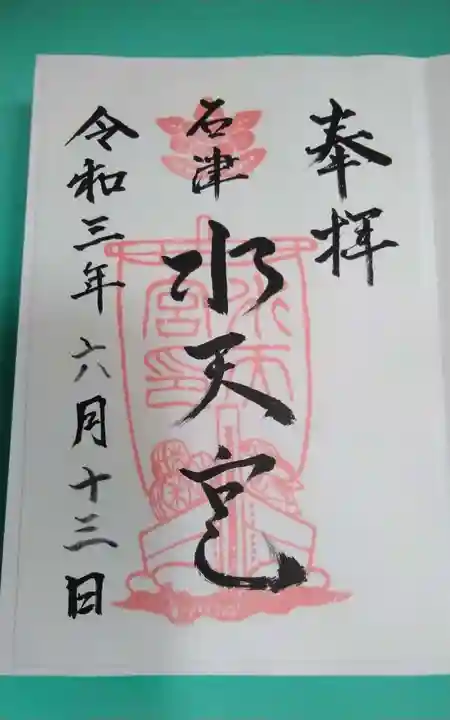 奉拝
石津
水天宮
水天宮印
令和三年六月十三日